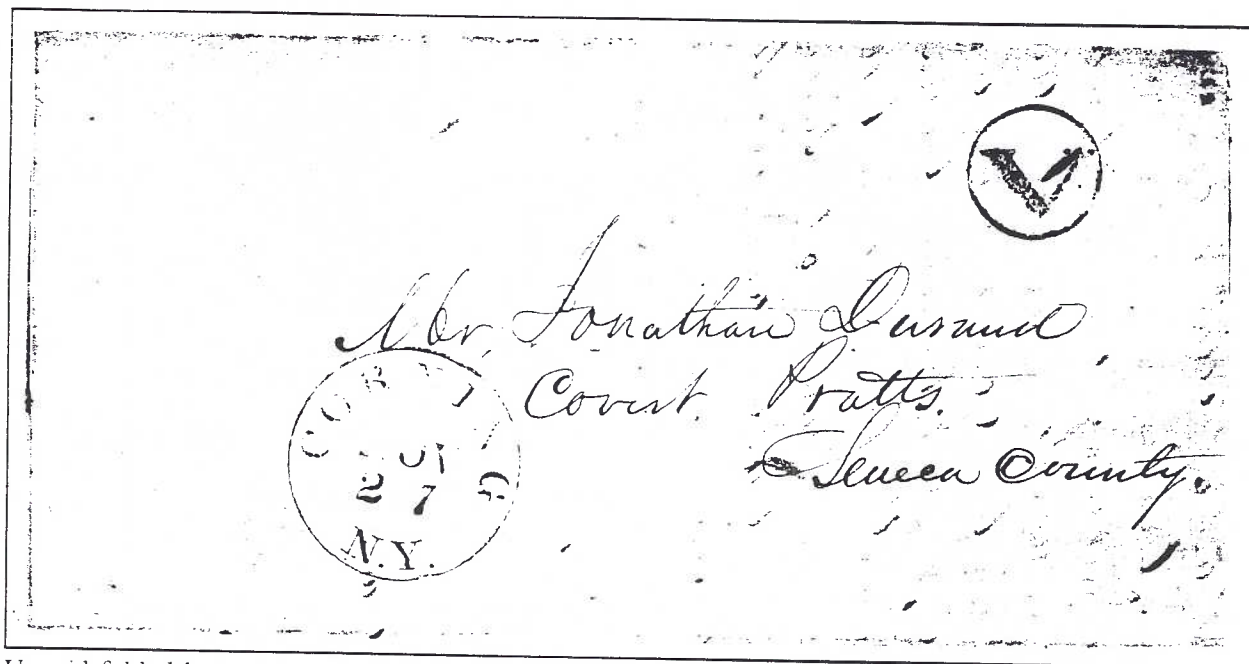 V
Mr. Jonathan Durand
Covert Pratts.
Seneca County.
27
N.Y.